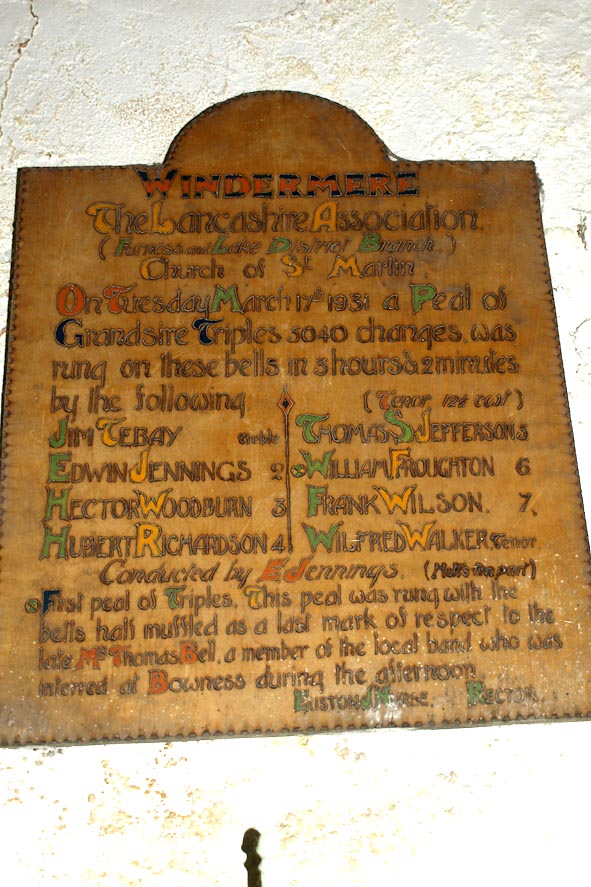 WINDERMERE
The Lancashire Association.
(Furness and Lake District Branch.)
Church of St Martin
On Tuesday March 17th 1931 a Peal of
Grandsire Triples 5040 changes, was
rung on these bells in 3 hours & 2 minutes
by the following (Tenor 12½ cwt)
JIM TEBAY treble THOMAS S JEFFERSON 5
EDWIN JENNINGS 2 WILLIAM FROUGHTON 6
HECTOR WOODBURN 3 FRANK WILSON. 7.
HUBERT RICHARDSON 4 WILFRED WALKER. Tenor
Conducted by E Jennings. (Holt's Ten part)
First peal of Triples. This peal was rung with the
bells half muffled as a last mark of respect to the
late Mr Thomas Bell, a member of the local band who was
interred at Bowness during the afternoon
EUSTON J NURSE. RECTOR.